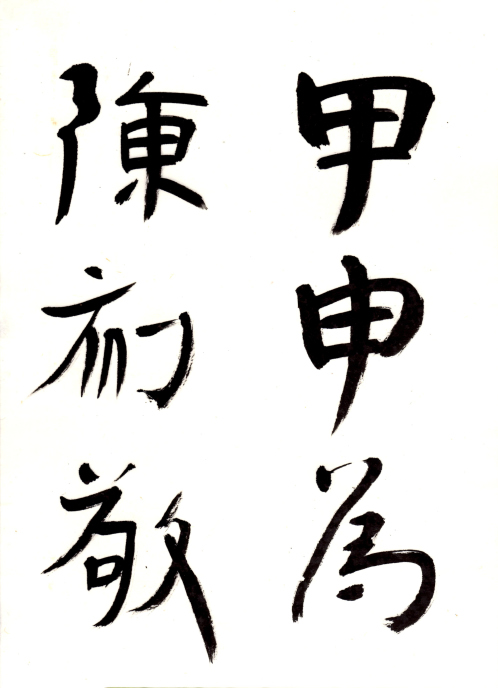 甲申為
陳初敬